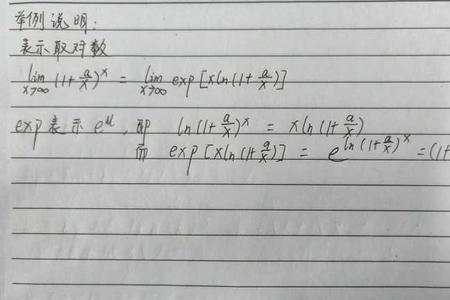 举例说明:
表示取对数
lim x→∞ (1+a/x)^x = lim x→∞ exp[xln(1+a/x)]
exp表示e^u,即 ln(1+a/x)^x = xln(1+a/x)
而 exp[xln(1+a/x)] = e^ln(1+a/x)^x = (1+